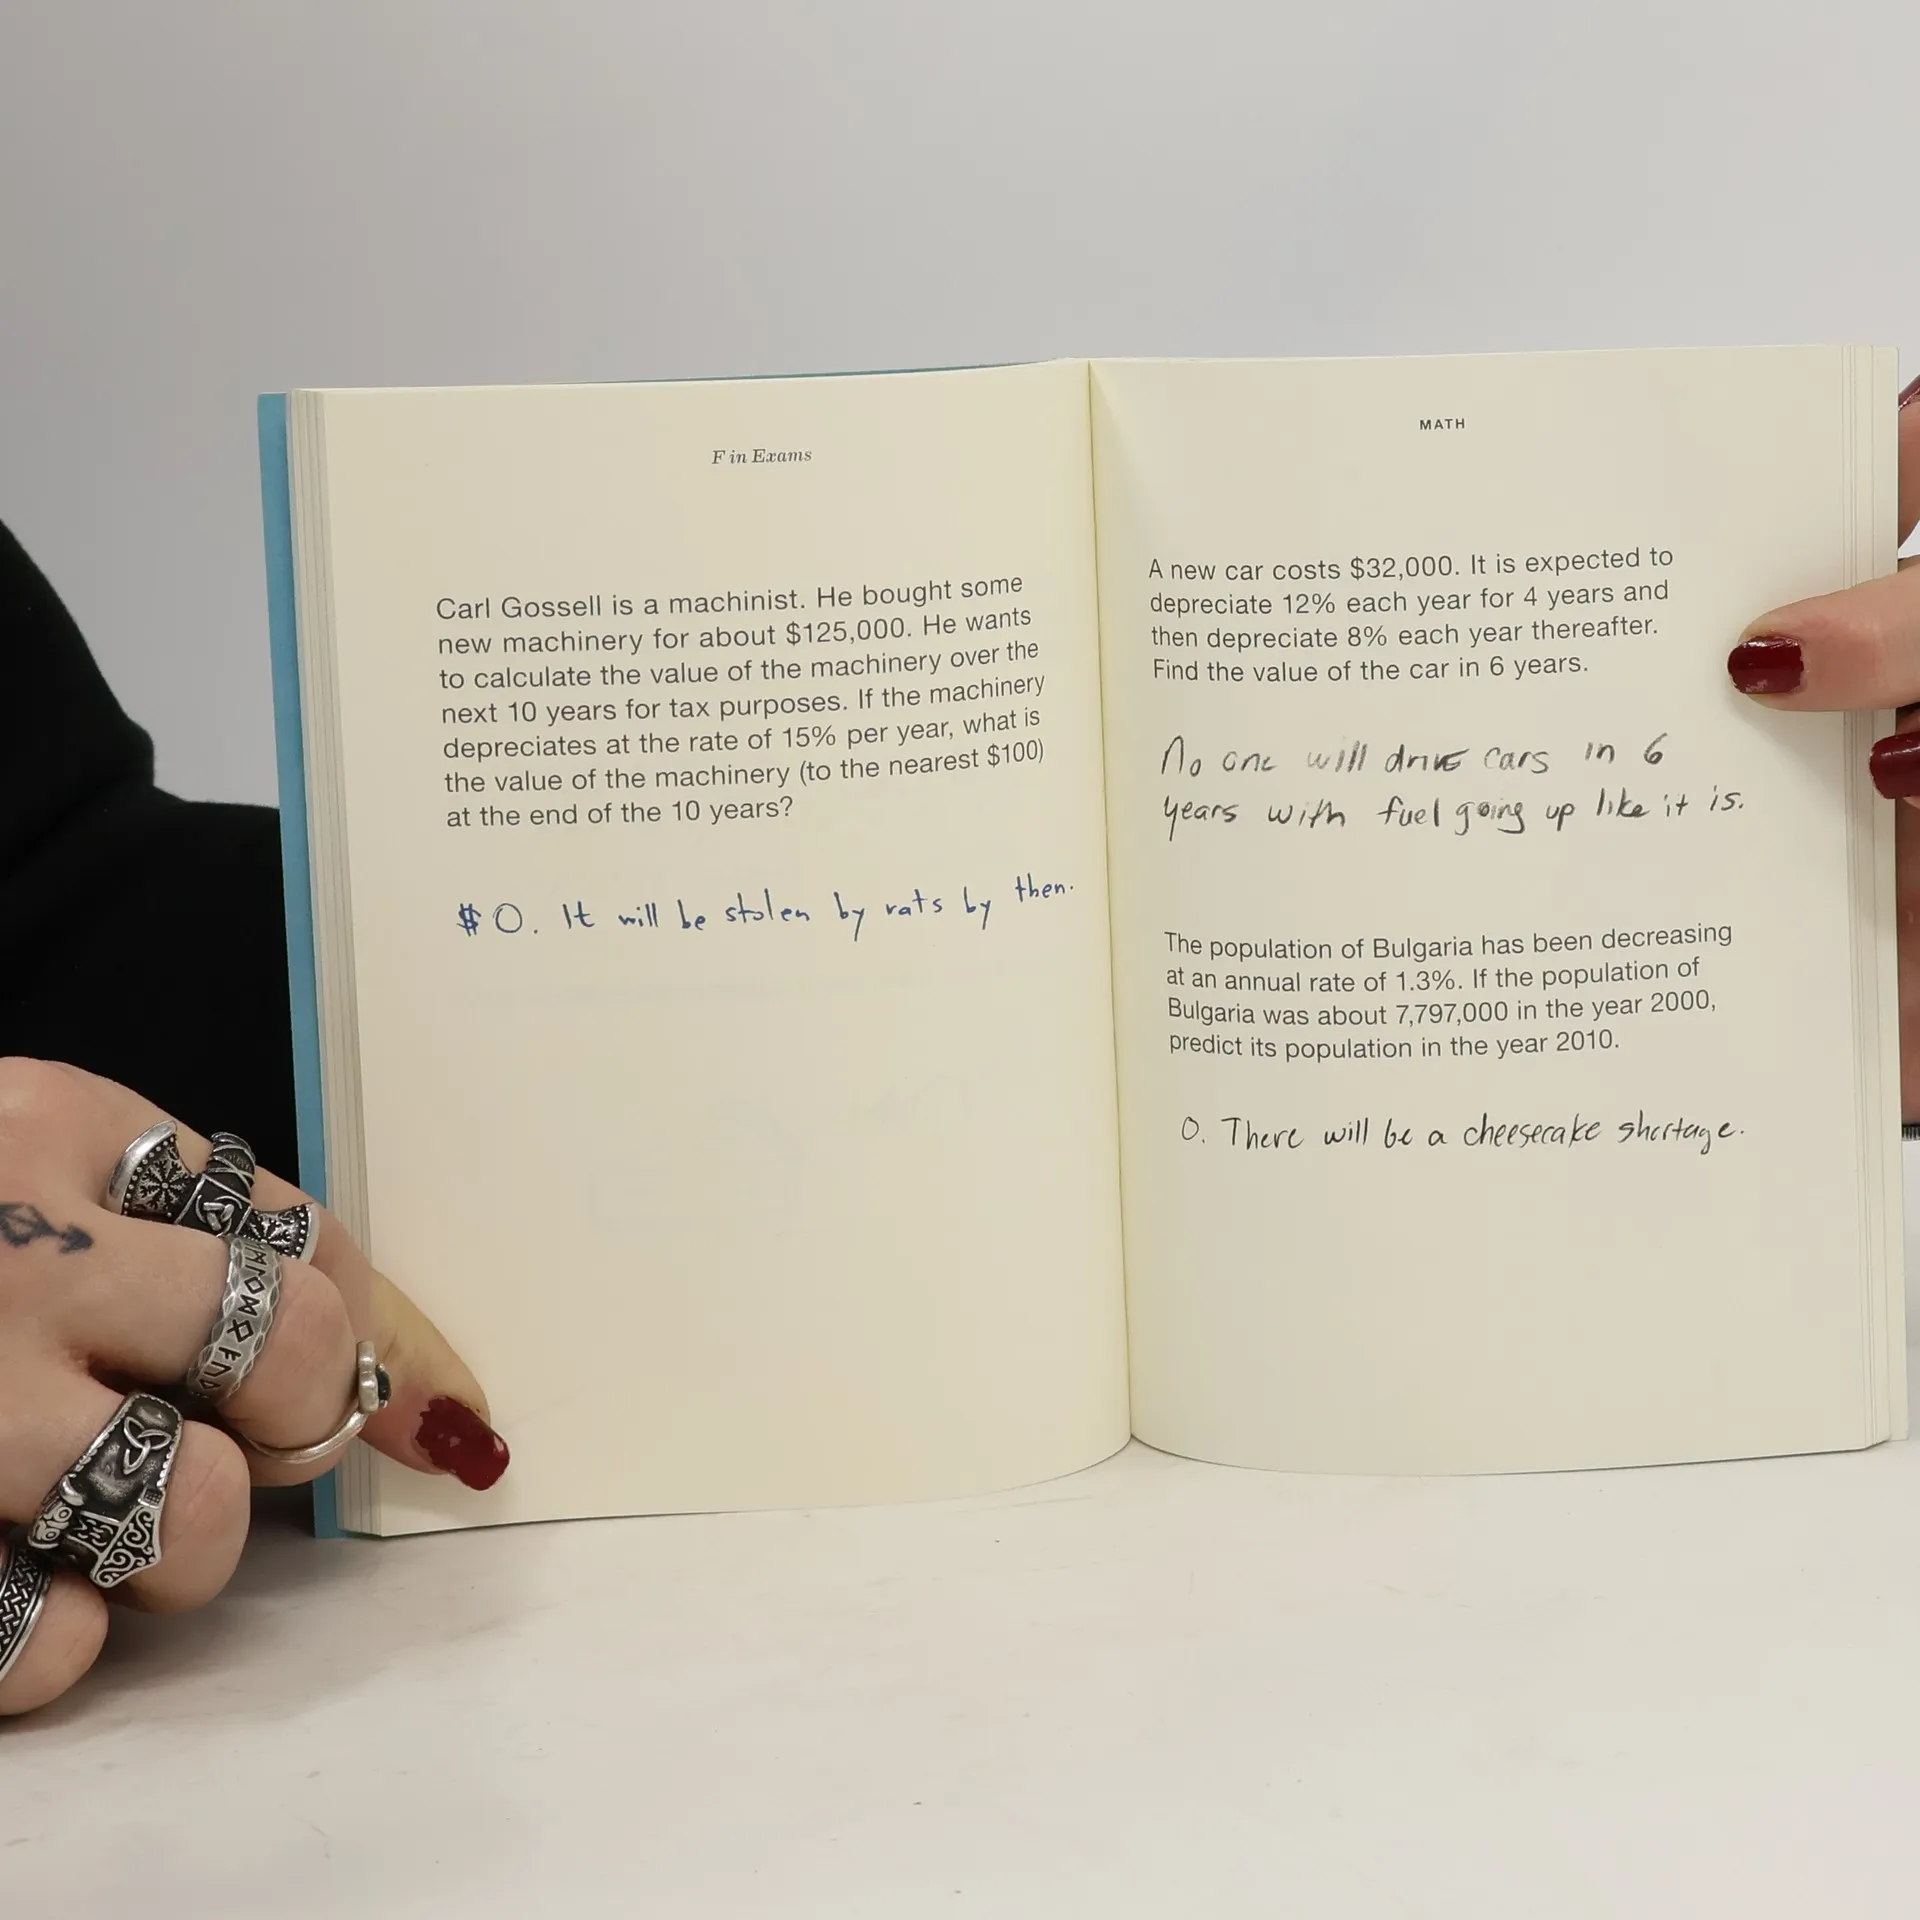 F in Exams
Carl Gossell is a machinist. He bought some
new machinery for about $125,000. He wants
to calculate the value of the machinery over the
next 10 years for tax purposes. If the machinery
depreciates at the rate of 15% per year, what is
the value of the machinery (to the nearest $100)
at the end of the 10 years?
$0. It will be stolen by rats by then.
MATH
A new car costs $32,000. It is expected to
depreciate 12% each year for 4 years and
then depreciate 8% each year thereafter.
Find the value of the car in 6 years.
No one will drive cars in 6
years with fuel going up like it is.
The population of Bulgaria has been decreasing
at an annual rate of 1.3%. If the population of
Bulgaria was about 7,797,000 in the year 2000,
predict its population in the year 2010.
0. There will be a cheesecake shortage.